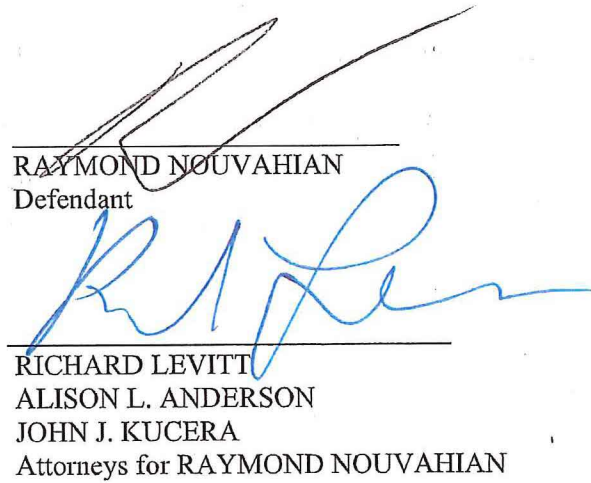 RAYMOND NOUVAHIAN
Defendant
RICHARD LEVITT
ALISON L. ANDERSON
JOHN J. KUCERA
Attorneys for RAYMOND NOUVAHIAN